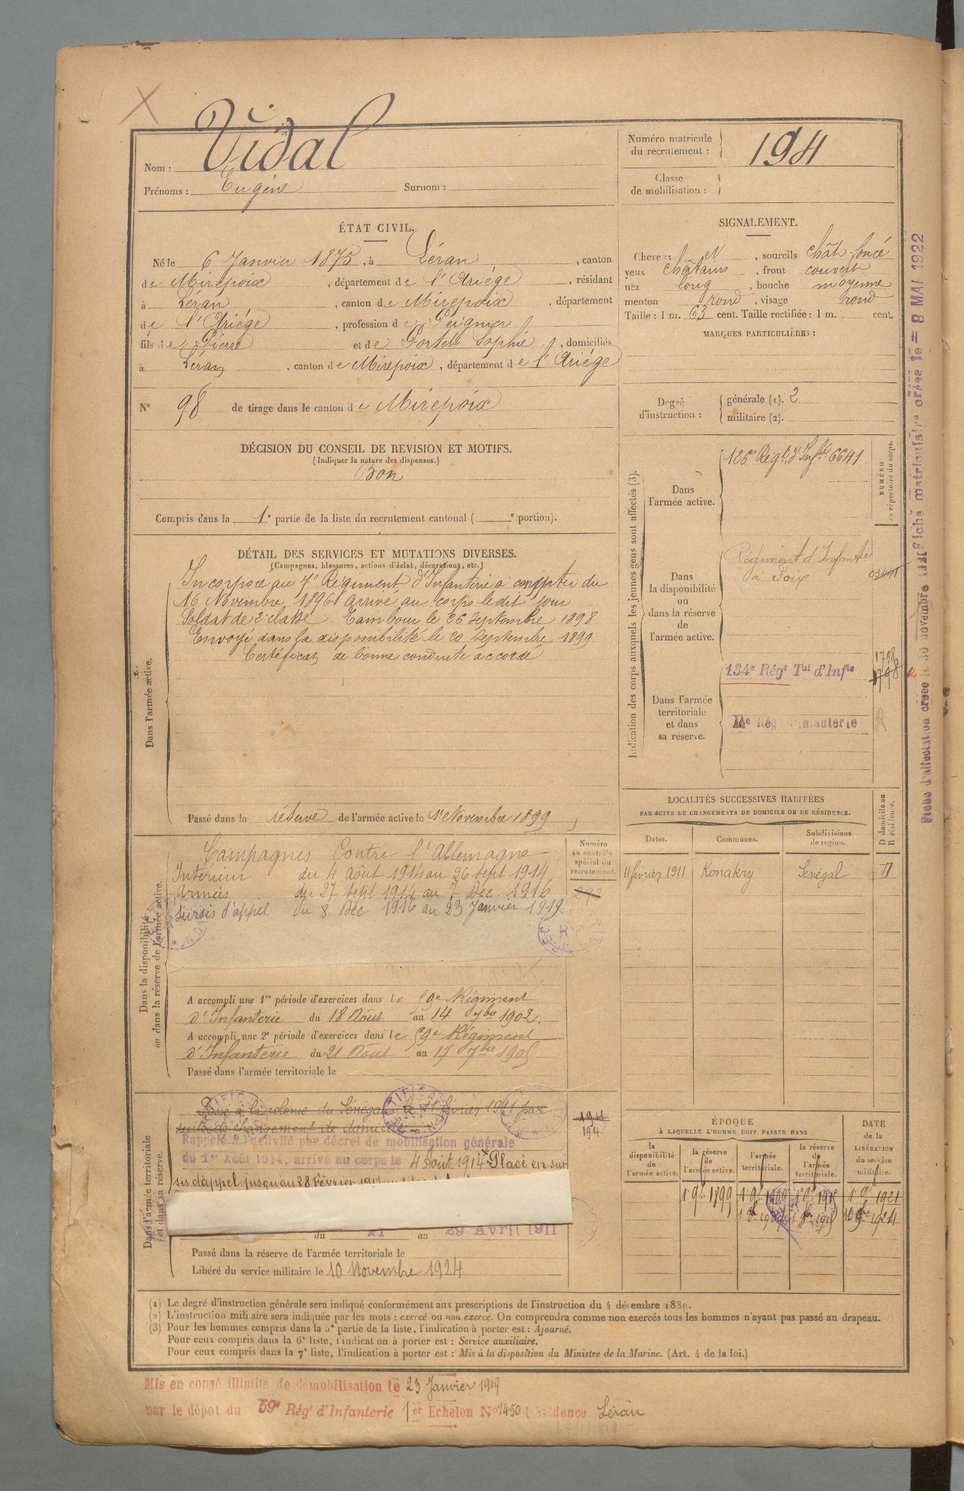 Nom : Vidal
Prénoms : Eugène Surnom :
Numéro matricule du recrutement : 194
Classe de mobilisation :
ÉTAT CIVIL.
Né le 6 Janvier 1875, à Léran, canton
de Mirepoix, département de l'Ariège, résidant
à Léran, canton de Mirepoix, département
de l'Ariège, profession de Peigneur
fils de Pierre et de Sophie, domiciliés
à Léran, canton de Mirepoix, département de l'Ariège
N° 98 de tirage dans le canton de Mirepoix
SIGNALEMENT.
Cheveux et, sourcils chât. foncé
yeux châtains, front couvert
nez long, bouche moyenne
menton rond, visage rond
Taille : 1 m. 63 cent. Taille rectifiée : 1 m. cent.
MARQUES PARTICULIÈRES :
Degré d'instruction :
générale (1). 2
militaire (2).
DÉCISION DU CONSEIL DE REVISION ET MOTIFS.
(Indiquer la nature des dispenses.)
Bon
Compris dans la 1e partie de la liste du recrutement cantonal ( e portion).
DÉTAIL DES SERVICES ET MUTATIONS DIVERSES.
(Campagnes, blessures, actions d'éclat, décorations, etc.)
Dans l'armée active.
Incorporé au 7e Régiment d'Infanterie à compter du
16 Novembre 1896 arrivé au corps le dit jour
Soldat de 2e classe Tambour le 26 Septembre 1898
Envoyé dans la disponibilité le 20 Septembre 1899
Certificat de bonne conduite accordé
Passé dans la réserve de l'armée active le 1er Novembre 1899
Indication des corps auxquels les jeunes gens sont affectés (3).
NUMÉRO au répertoire du corps.
Dans l'armée active.
126e Régt. d'Infrie 6641
Dans la disponibilité ou dans la réserve de l'armée active.
Régiment d'Infanterie
à Foix
Dans l'armée territoriale et dans sa réserve.
134e Régt Tal d'Infie
1798
Régt Infanterie
Fiche matriculaire créée le = 8 MAI 1922
Fiche d'affectation créée le 30 novembre
Dans la disponibilité ou dans la réserve de l'armée active.
Numéro au contrôle spécial du recrutement.
Campagnes Contre l'Allemagne
Intérieur du 4 Août 1914 au 26 Sept 1914
Armées du 27 Sept 1914 au 7 Déc. 1916
Sursis d'appel du 8 Déc 1916 au 23 Janvier 1919.
A accompli une 1re période d'exercices dans le 59e Régiment
d'Infanterie du 18 Août au 14 7bre 1902.
A accompli une 2e période d'exercices dans le 59e Régiment
d'Infanterie du 21 Août au 17 7bre 1905
Passé dans l'armée territoriale le
LOCALITÉS SUCCESSIVES HABITÉES
PAR SUITE DE CHANGEMENTS DE DOMICILE OU DE RÉSIDENCE.
Dates. Communes. Subdivisions de région. D domicile ou R résidence.
11 février 1911 Konakry Sénégal D
Dans l'armée territoriale et dans sa réserve.
Passé à la colonie du Sénégal le 11 février 1911 par
changement de domicile
194
194
Rappelé à l'activité par décret de mobilisation générale
du 1er Août 1914, arrivé au corps le 4 Août 1914 Placé en sur
sis d'appel jusqu'au 28 Février 1917
du 21 au 29 Avril 1911
Passé dans la réserve de l'armée territoriale le
Libéré du service militaire le 10 Novembre 1924
ÉPOQUE
À LAQUELLE L'HOMME DOIT PASSER DANS
la disponibilité de l'armée active.
la réserve de l'armée active.
l'armée territoriale.
la réserve de l'armée territoriale.
DATE de la LIBÉRATION du service militaire.
1 9bre 1899
(1) Le degré d'instruction générale sera indiqué conformément aux prescriptions de l'instruction du 4 décembre 1889.
(2) L'instruction militaire sera indiquée par les mots : exercé ou non exercé. On comprendra comme non exercés tous les hommes n'ayant pas passé au drapeau.
(3) Pour les hommes compris dans la 5e partie de la liste, l'indication à porter est : Ajourné.
Pour ceux compris dans la 6e liste, l'indication à porter est : Service auxiliaire.
Pour ceux compris dans la 7e liste, l'indication à porter est : Mis à la disposition du Ministre de la Marine. (Art. 4 de la loi.)
Mis en congé illimité de démobilisation le 23 Janvier 1919
par le dépot du 59e Régt d'Infanterie 1er Echelon N° 1450 résidence Léran